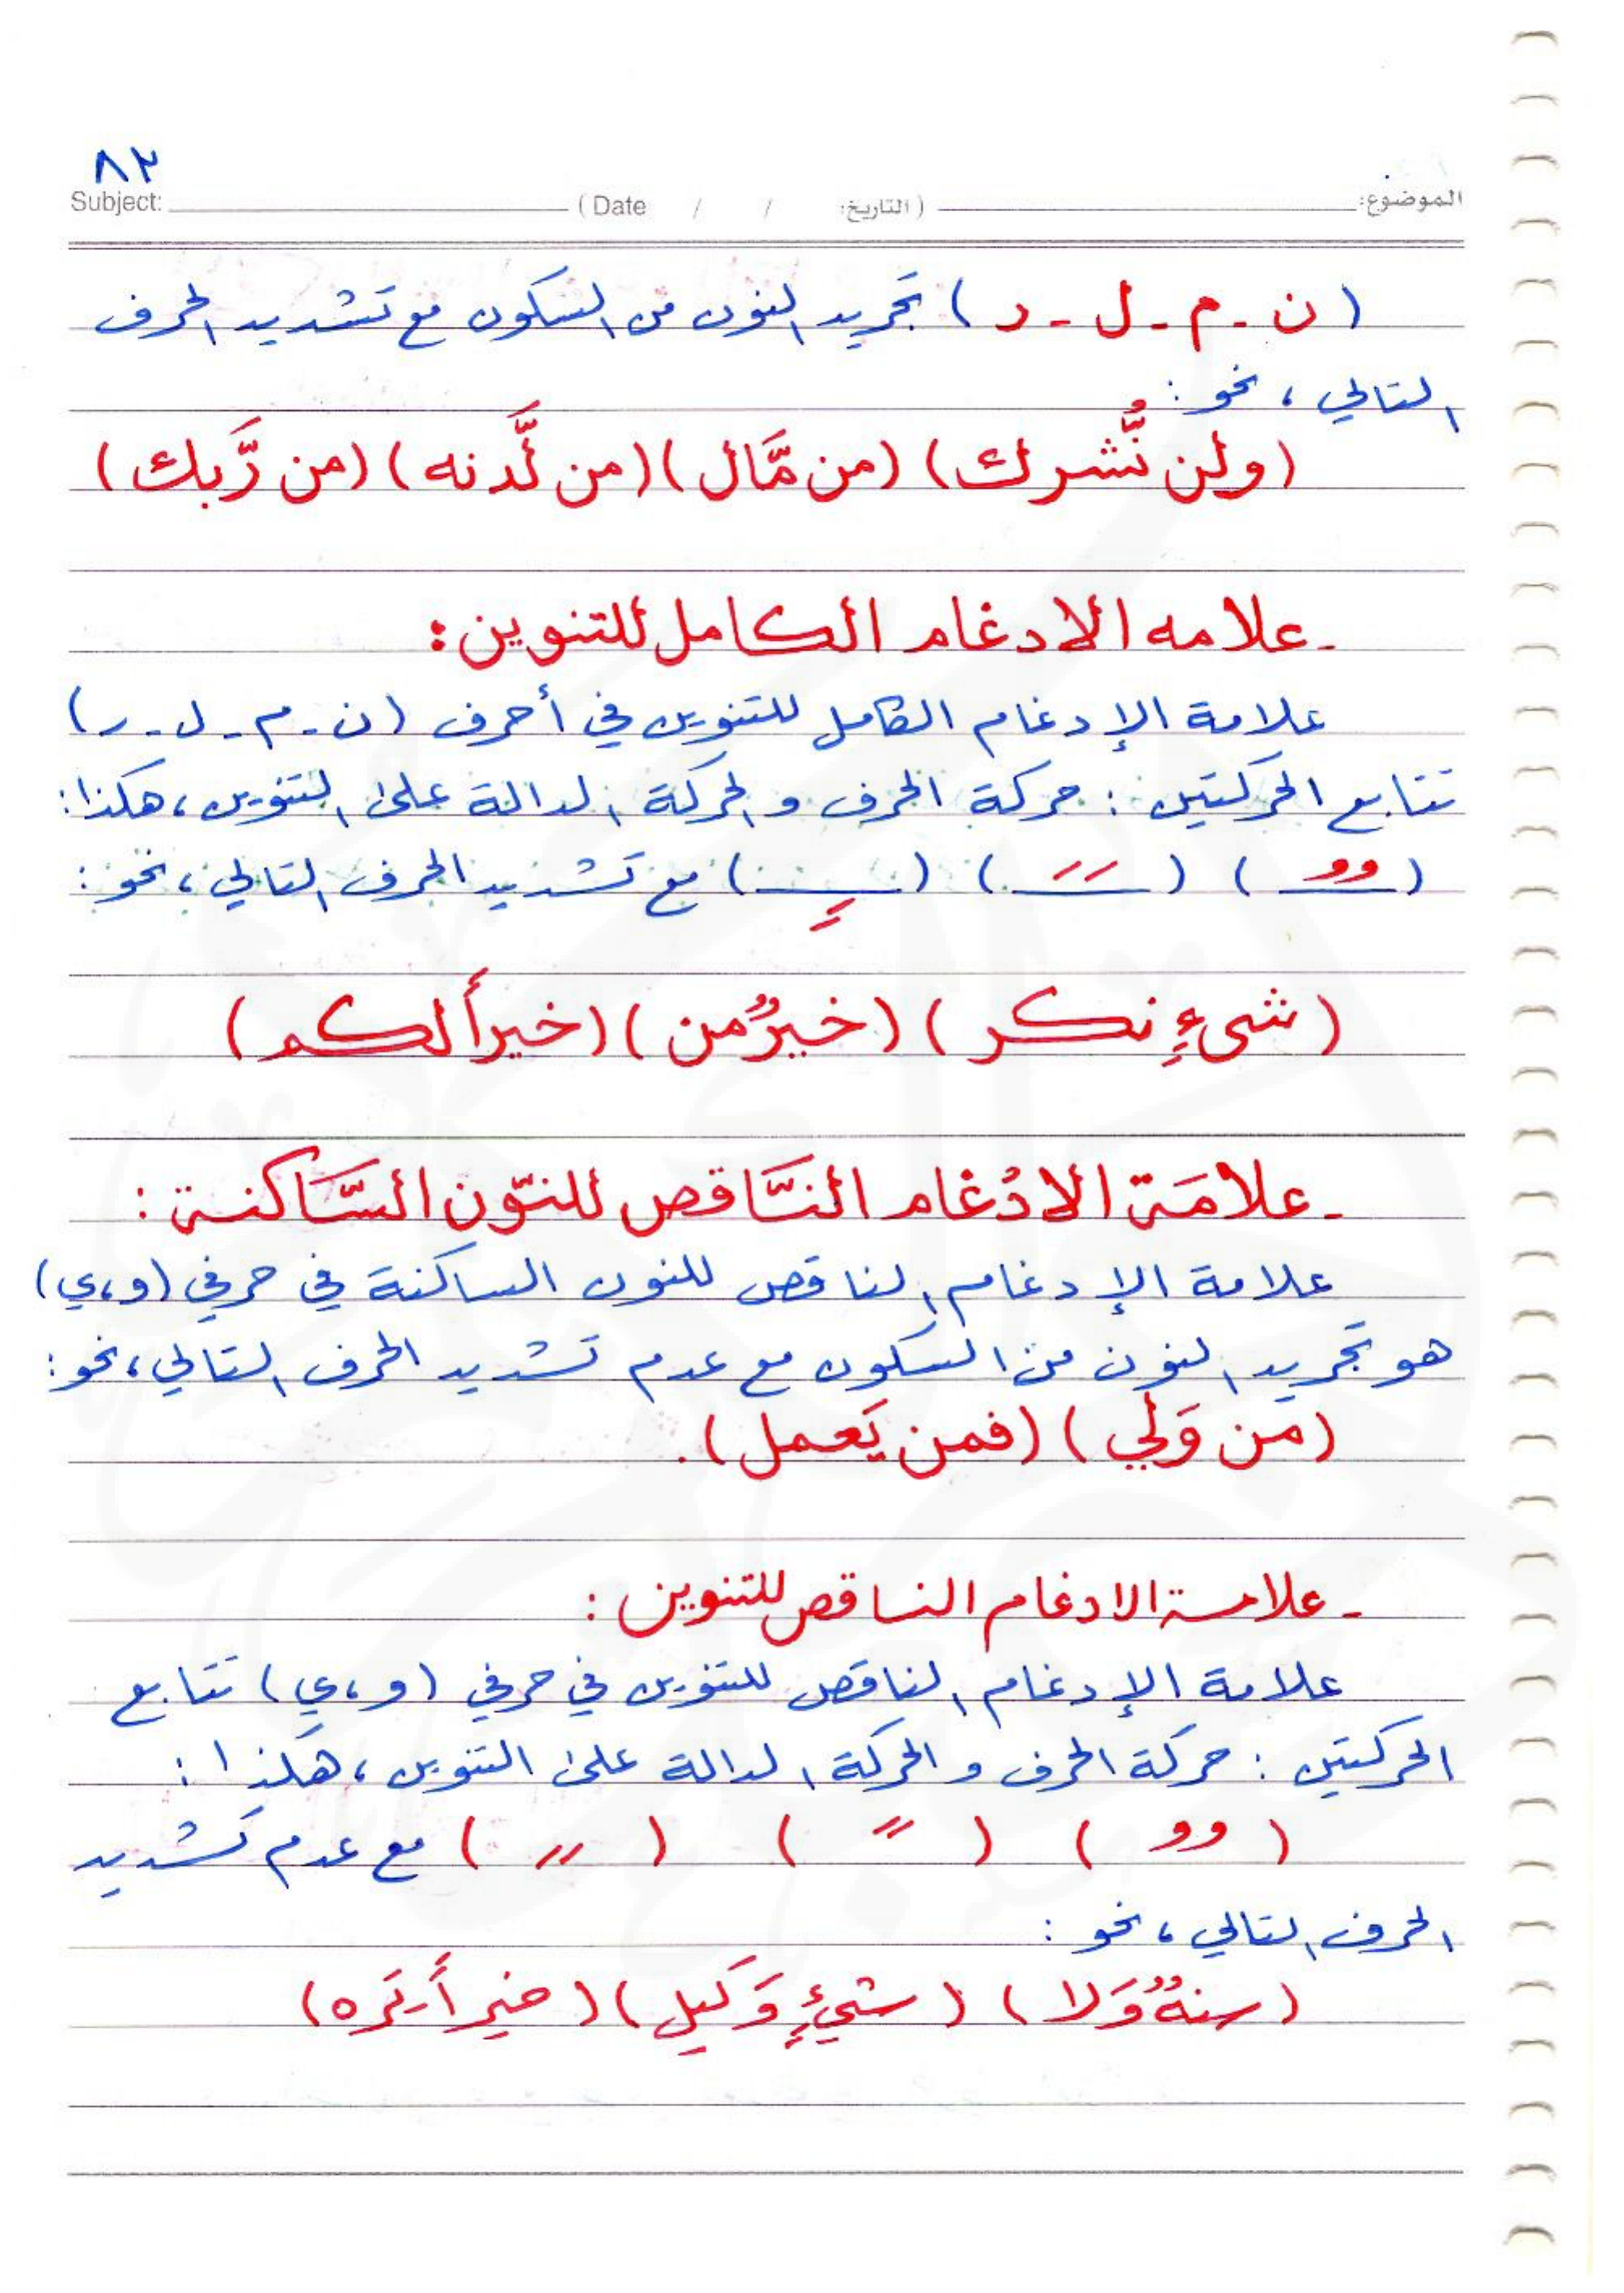 ٨٣
الموضوع: (التاريخ: / / Date) Subject:
(ن - م - ل - ر) تجريد النون من السكون مع تشديد الحرف
التالي ، نحو :
(ولن نُّشرك) (من مَّال) (من لَّدنه) (من رَّبك)
- علامه الادغام الكامل للتنوين :
علامة الإدغام الكامل للتنوين في أحرف (ن - م - ل - ر)
تتابع الحركتين : حركة الحرف و الحركة الدالة على التنوين ، هكذا :
(ـٌـ) (ـًـ) (ـٍـ) مع تشديد الحرف التالي ، نحو :
(شىءٍ نكر) (خيرٌ من) (خيراً لكم)
- علامَة الادْغام النَّاقص للنّون السَّاكنة :
علامة الإدغام الناقص للنون الساكنة في حرفي (و ، ي)
هو تجريد النون من السكون مع عدم تشديد الحرف التالي ، نحو :
(من وَلي) (فمن يَعمل) .
- علامة الادغام الناقص للتنوين :
علامة الإدغام الناقص للتنوين في حرفي (و ، ي) تتابع
الحركتين : حركة الحرف و الحركة الدالة على التنوين ، هكذا :
(ٌ) (ً) (ٍ) مع عدم تشديد
الحرف التالي ، نحو :
(سنةٌ وَلا) (شيءٍ وَكيل) (خيراً يَره)